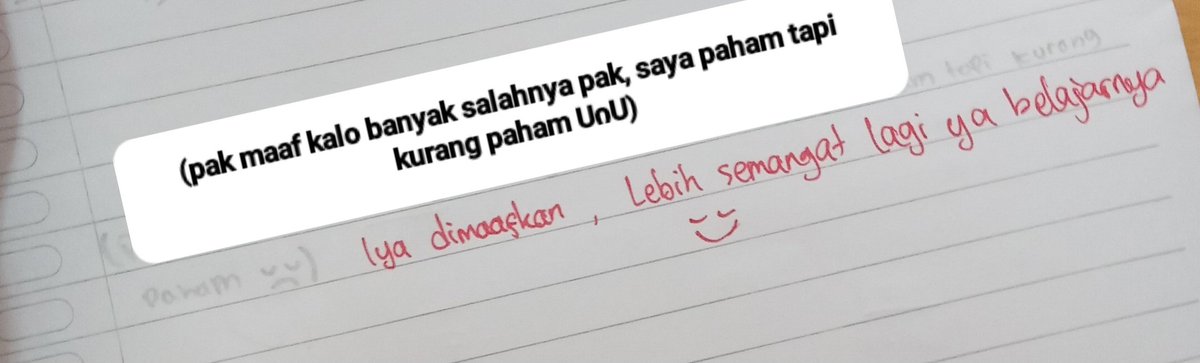 (pak maaf kalo banyak salahnya pak, saya paham tapi
kurang paham UnU)
tapi kurang
paham )
Iya dimaafkan, Lebih semangat lagi ya belajarnya